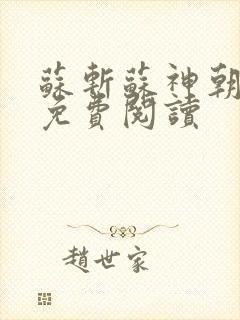 蘇斬蘇神朝
免費閱讀
趙世家